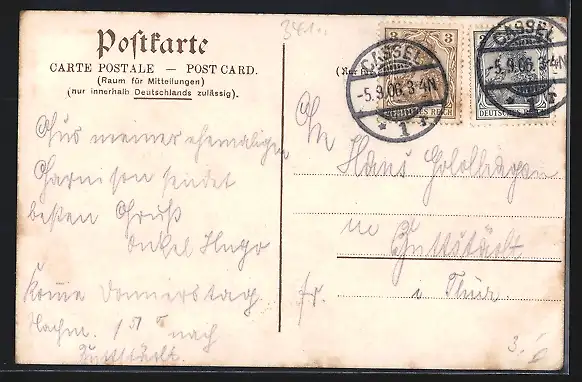 3410.
Postkarte
CARTE POSTALE — POST CARD.
(Raum für Mitteilungen)
(nur innerhalb Deutschlands zulässig).
3
DEUTSCHES REICH
CASSEL
-5.9.06.3-4N
* 1 *
DEUTSCHES REICH
CASSEL
-5.9.06.3-4N
Aus meiner ehemaligen
Garnison sendet
besten Gruß
Onkel Hugo
Komme Donnerstag
Nachm. nach
Buttstädt.
An
Hans
in
Buttstädt
fr. i. Thür.
3.-